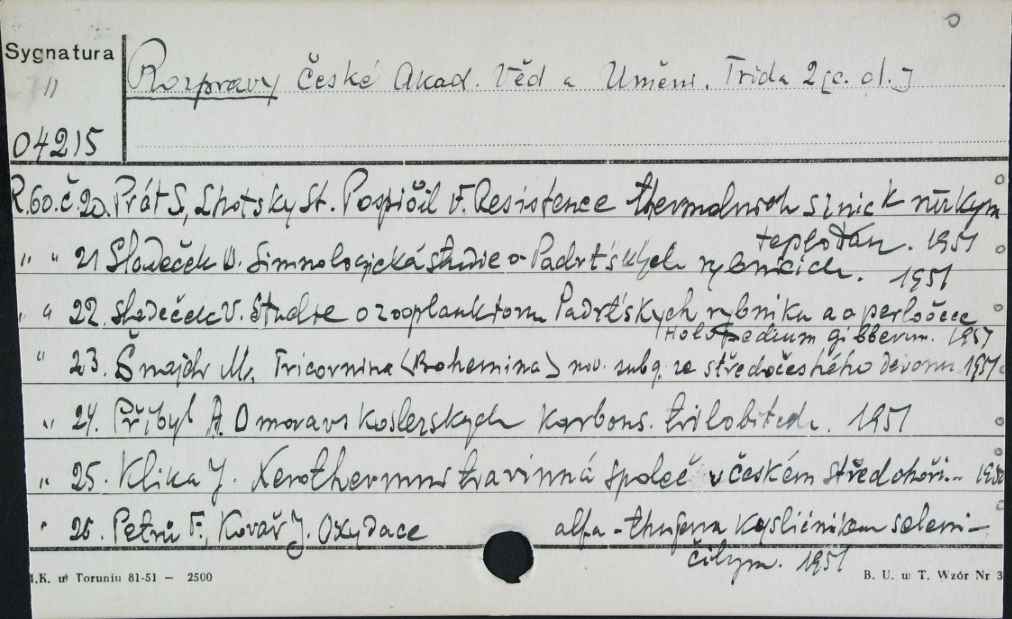 Sygnatura
"
Rozpravy České Akad. Věd a Uměni. Třida 2 [c. d.]
04215
R.60.č.20. Prát S., Lhotsky St. Pospišil F. Resistence thermalnich sinic k nizkym
teplotam. 1951
" " 21 Sladeček V. Limnologická studie o Padrt'skych rybnicich. 1951
" " 22. Sladeček V. Studie o zooplanktonu Padrt'skych rybniku a o perloočce
Holopedium gibberum. 1951
" 23. Šnajdr M. Tricornina (Bohemina) nov. subg. ze středočeského devonu 1951
" 24. Přibyl A. O moravskoslezskych karbons. trilobitech. 1951
" 25. Klika J. Xerothermni travinná společ v českém středohoři.-
" 26. Petrů F., Kovář J. Oxydace alfa-thujenu kysličnikem seleni-
čitym. 1951
.K. w Toruniu 81-51 — 2500
B. U. w T. Wzór Nr 3